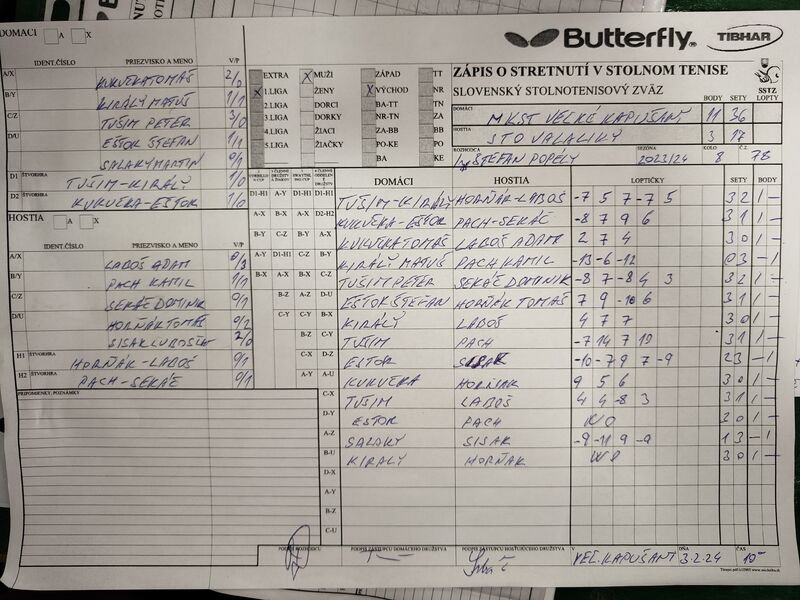 Butterfly. TIBHAR
DOMÁCI A X
IDENT.ČÍSLO PRIEZVISKO A MENO V/P
A/X KUKVERATOMÁŠ 2/0
B/Y KIRÁLY MATÚŠ 1/1
C/Z TUŠIM PETER 3/0
D/U ESTOR ŠTEFAN 1/1
SALAKYMARTIN 0/1
D1 ŠTVORHRA TUŠIM-KIRÁLY 1/0
D2 ŠTVORHRA KUKVERA-ESTOR 1/0
HOSTIA A X
IDENT.ČÍSLO PRIEZVISKO A MENO V/P
A/X LABOŠ ADAM 0/3
B/Y PACH KAMIL 1/1
C/Z SEKÁČ DOMINIK 0/1
D/U HORŇÁK TOMÁŠ 0/2
SISAK LUBOSLAV 2/0
H1 ŠTVORHRA HORŇÁK-LABOŠ 0/1
H2 ŠTVORHRA PACH-SEKÁČ 0/1
PRIPOMIENKY, POZNÁMKY
EXTRA X MUŽI ZÁPAD TT
X 1.LIGA ŽENY X VÝCHOD NR
2.LIGA DORCI BA-TT TN
3.LIGA DORKY NR-TN ZA
4.LIGA ŽIACI ZA-BB BB
5.LIGA ŽIAČKY PO-KE PO
BA KE
ZÁPIS O STRETNUTÍ V STOLNOM TENISE
SLOVENSKÝ STOLNOTENISOVÝ ZVÄZ SSTZ
BODY SETY LOPTY
DOMÁCI MKST VEĽKÉ KAPUŠANY 11 36
HOSTIA STO VALALIKY 3 17
ROZHODCA ŠTEFAN POPÉLY SEZÓNA 2023/24 KOLO 8 Č.Z. 78
DOMÁCI HOSTIA LOPTIČKY SETY BODY
D1-H1 A-Y D1-H1 D1-H1 TUŠIM-KIRÁLY HORŇÁK-LABOŠ -7 5 7 -7 5 3 2 1 -
A-X B-X A-X D2-H2 KUKVERA-ESTOR PACH-SEKÁČ -8 7 9 6 3 1 1 -
B-Y C-Z B-Y A-X KUKVERATOMÁŠ LABOŠ ADAM 2 7 4 3 0 1 -
A-Y D1-H1 C-Z B-Y KIRÁLY MATÚŠ PACH KAMIL -13 -6 -12 0 3 - 1
B-X A-X B-X C-Z TUŠIM PETER SEKÁČ DOMINIK -8 7 -8 4 3 3 2 1 -
B-Z A-Z D-U ESTOR ŠTEFAN HORŇÁK TOMÁŠ 7 9 -10 6 3 1 1 -
C-Y C-Y B-X KIRÁLY LABOŠ 4 7 7 3 0 1 -
B-Z C-Y TUŠIM PACH -7 14 7 10 3 1 1 -
C-X D-Z ESTOR SISAK -10 -7 9 7 -9 2 3 - 1
A-Y A-U KUKVERA HORŇAK 9 5 6 3 0 1 -
C-X TUŠIM LABOŠ 4 4 -8 3 3 1 1 -
D-Y ESTOR PACH WO 3 0 1 -
A-Z SALAKY SISAK -9 -11 9 -9 1 3 - 1
B-U KIRALY HORŇAK WO 3 0 1 -
D-X
A-Y
B-Z
C-U
PODPIS ROZHODCU PODPIS ZÁSTUPCU DOMÁCEHO DRUŽSTVA PODPIS ZÁSTUPCU HOSŤUJÚCEHO DRUŽSTVA V VEĽ. KAPUŠANY DŇA 3.2.24 ČAS 10